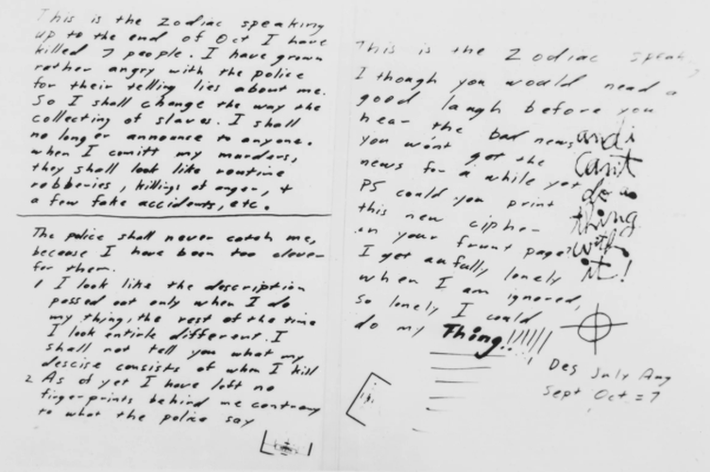 This is the Zodiac speaking
up to the end of Oct I have
killed 7 people. I have grown
rather angry with the police
for their telling lies about me.
So I shall change the way the
collecting of slaves. I shall
no longer announce to anyone.
when I comitt my murders,
they shall look like routine
robberies, killings of anger, +
a few fake accidents, etc.
The police shall never catch me,
because I have been too clever
for them.
1 I look like the description
passed out only when I do
my thing, the rest of the time
I look entirle different. I
shall not tell you what my
descise consists of when I kill
2 As of yet I have left no
fingerprints behind me contrary
to what the police say
This is the Zodiac speaking
I though you would nead a
good laugh before you
hear the bad news
you won't get the
news for a while yet
PS could you print
this new cipher
on your frunt page?
I get awfully lonely
when I am ignored,
so lonely I could
do my Thing!!!!!!
and i
can't
do a
thing
with
it!
Des July Aug
Sept Oct = 7